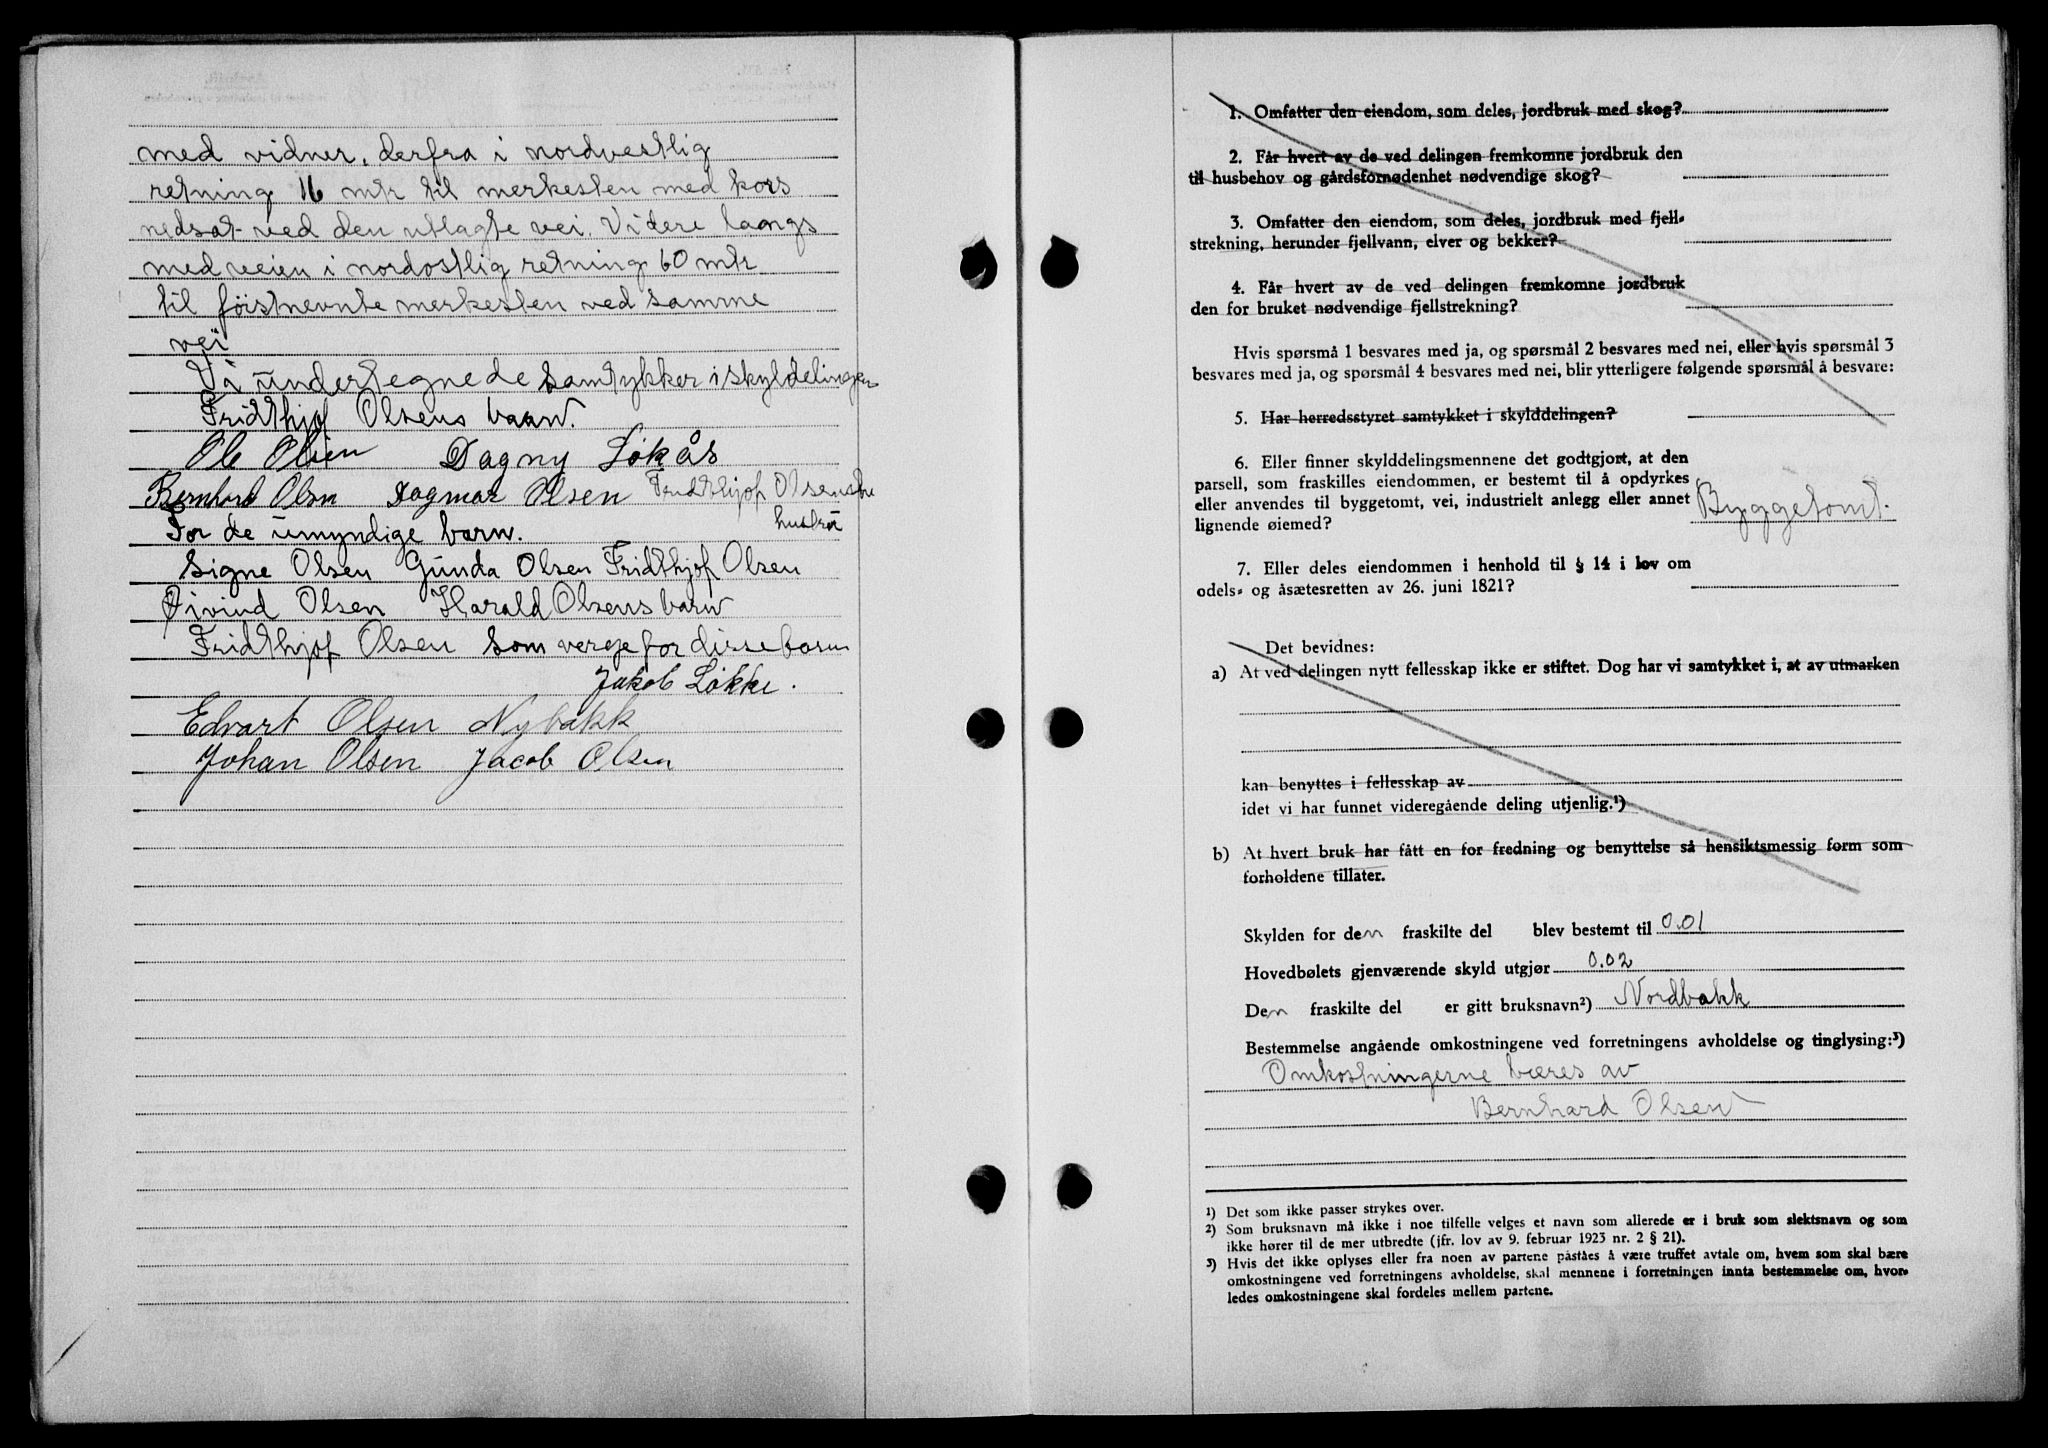 med vidner, derfra i nordvestlig
retning 16 mtr til merkesten med kors
nedsat ved den utlagte vei. Videre langs
med veien i nordostlig retning 60 mtr
til föistnevnte merkesten ved samme
vei
Vi undertegnede samtykker i skyldelingen
Fridthjof Olsens barn.
Ole Olsen Dagny Løkås
Bernhard Olsen Dagmar Olsen Fridthjof Olsens
hustru
For de umyndige barn.
Signe Olsen Gunda Olsen Fridthjof Olsen
Øivind Olsen Harald Olsens barn
Fridthjof Olsen som verge for disse barn
Jakob Løkke.
Edvart Olsen Nybakk
Johan Olsen Jacob Olsen
1. Omfatter den eiendom, som deles, jordbruk med skog?
2. Får hvert av de ved delingen fremkomne jordbruk den
til husbehov og gårdsfornødenhet nødvendige skog?
3. Omfatter den eiendom, som deles, jordbruk med fjell-
strekning, herunder fjellvann, elver og bekker?
4. Får hvert av de ved delingen fremkomne jordbruk
den for bruket nødvendige fjellstrekning?
Hvis spørsmå 1 besvares med ja, og spørsmål 2 besvares med nei, eller hvis spørsmål 3
besvares med ja, og spørsmål 4 besvares med nei, blir ytterligere følgende spørsmål å besvare:
5. Har herredsstyret samtykket i skylddelingen?
6. Eller finner skylddelingsmennene det godtgjort, at den
parsell, som fraskilles eiendommen, er bestemt til å opdyrkes
eller anvendes til byggetomt, vei, industrielt anlegg eller annet
lignende øiemed? Byggetomt.
7. Eller deles eiendommen i henhold til § 14 i lov om
odels- og åsætesretten av 26. juni 1821?
Det bevidnes:
a) At ved delingen nytt fellesskap ikke er stiftet. Dog har vi samtykket i, at av utmarken
kan benyttes i fellesskap av
idet vi har funnet videregående deling utjenlig.¹)
b) At hvert bruk har fått en for fredning og benyttelse så hensiktsmessig form som
forholdene tillater.
Skylden for den fraskilte del blev bestemt til 0.01
Hovedbølets gjenværende skyld utgjør 0.02
Den fraskilte del er gitt bruksnavn²) Nordbakk
Bestemmelse angående omkostningene ved forretningens avholdelse og tinglysing:³)
Omkostningerne bæres av
Bernhard Olsen
¹) Det som ikke passer strykes over.
²) Som bruksnavn må ikke i noe tilfelle velges et navn som allerede er i bruk som slektsnavn og som
ikke hører til de mer utbredte (jfr. lov av 9. februar 1923 nr. 2 § 21).
³) Hvis det ikke oplyses eller fra noen av partene påståes å være truffet avtale om, hvem som skal bære
omkostningene ved forretningens avholdelse, skal mennene i forretningen innta bestemmelse om, hvor-
ledes omkostningene skal fordeles mellem partene.